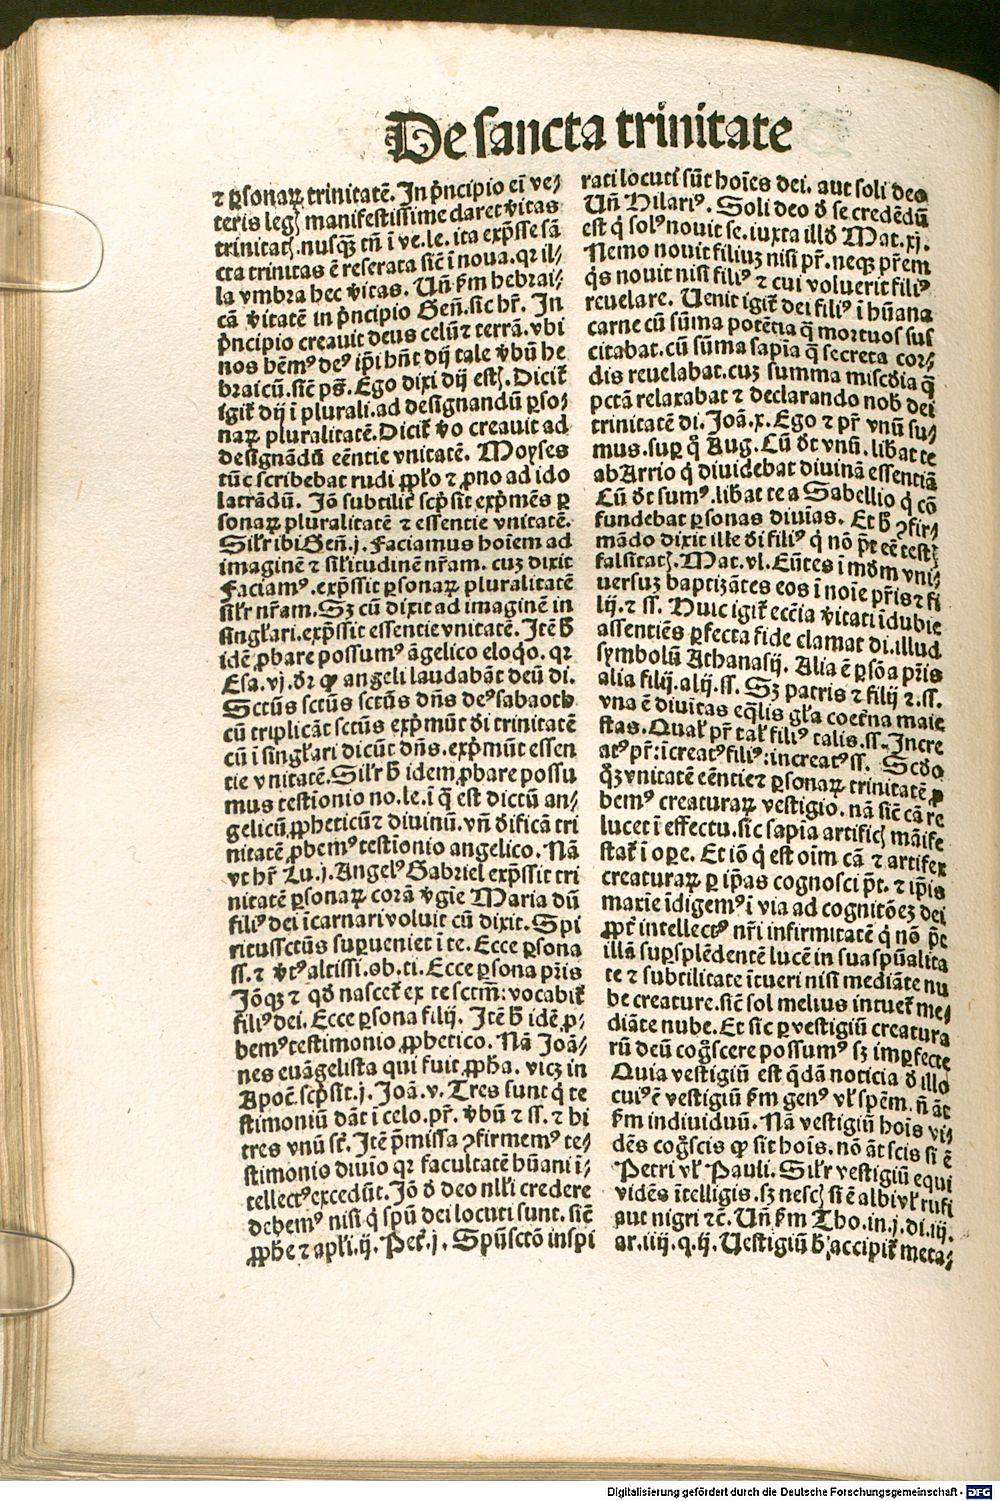 De sancta trinitate
⁊ ꝑsonaꝝ trinitatē. In pͥncipio eī ve⸗
teris legꝭ manifestissime claret vͥitas
trinitatꝭ. nusqͣꝫ tn̄ ī ve. le. ita exp̄sse sā
cta trinitas ē reserata sic̄ ī noua. qꝛ il⸗
la vmbra hec vͥitas. Un̄ ẜm hebrai⸗
cā vͥitatē in pͥncipio Gen̄. sic hr̄. In
pͥncipio creauit deus celū ⁊ terrā. vbi
nos hēmꝰ deꝰ ip̄i hn̄t dij tale vͥbū he
braicū. sic̄ ps̄. Ego dixi dij estꝭ. Dicit̄
igit̄ dij ī plurali. ad designandū ꝑso⸗
naꝝ pluralitatē. Dicit̄ vͦo creauit ad
designādū eēntie vnitatē. Moyses
tūc scribebat rudi pplo ⁊ ꝓno ad ido
latrādū. Jō subtilit̄ scpͥsit expͥmēs ꝑ
sonaꝝ pluralitatē ⁊ essentie vnitatē.
Silr̄ ibi Gen̄. j. Faciamus hoīem ad
imaginē ⁊ silitudinē nr̄am. cuꝫ dixit
Faciamꝰ. exp̄ssit ꝑsonaꝝ pluralitatē
silr̄ nr̄am. Sꝫ cū dixit ad imaginē in
singlari. exp̄ssit essentie vnitatē. Itē h̄
idē ꝓbare possumꝰ āgelico eloqͦo. qꝛ
Esa. vj. dr̄ ꝙ angeli laudabāt deū di.
Sctūs sctūs sctūs dn̄s deꝰ sabaoth
cū triplicāt sctūs expͥmūt di trinitatē
cū ī singlari dicūt dn̄s. expͥmūt essen
tie vnitatē. Silr̄ h̄ idem ꝓbare possu
mus testīonio no. le. ī qͣ est dictū an⸗
gelicū ꝓpheticū ⁊ diuinū. vn̄ dificā tri
nitatē ꝓbemꝰ testīonio angelico. Nā
vt hr̄ Lu. j. Angelꝰ Gabriel exp̄ssit tri
nitatē ꝑsonaꝝ corā vͥgīe Maria dū
filiꝰ dei īcarnari voluit cū dixit. Spi
ritussctūs suꝑueniet ī te. Ecce ꝑsona
ss. ⁊ vͥtꝰ altissi. ob. ti. Ecce ꝑsona pr̄is
Jōqꝫ ⁊ qd̄ nascet̄ ex te sctm̄: vocabit̄
filiꝰ dei. Ecce ꝑsona filij. Itē h̄ idē ꝓ⸗
bemꝰ testimonio ꝓphetico. Nā Joā⸗
nes euāgelista qui fuit ꝓph̄a. vicꝫ in
Apoc̄. scpͥsit. j. Joā. v. Tres sunt qͥ te
stimoniū dāt ī celo. pr̄. vͥbū ⁊ ss. ⁊ hi
tres vnū st̄. Itē pͥmissa ꝯfirmemꝰ te⸗
stimonio diuīo qꝛ facultatē hūani ī⸗
tellectꝰ excedūt. Jō d̄ deo nlli credere
debemꝰ nisi qͥ spū dei locuti sunt. sic̄
ꝓph̄e ⁊ apli. ij. Pet̄. j. Spūsctō inspi
rati locuti sūt hoīes dei. aut soli deo
Un̄ Hilariꝰ. Soli deo d̄ se credēdū
est qͥ solꝰ nouit se. iuxta illd̄ Mat. xj.
Nemo nouit filiuꝫ nisi pr̄. neqꝫ pr̄em
qͥs nouit nisi filiꝰ ⁊ cui voluerit filiꝰ
reuelare. Uenit igit̄ dei filiꝰ ī hūana
carne cū sūma potētia qͣ mortuos sus
citabat. cū sūma sapīa qͣ secreta cor⸗
dis reuelabat. cuꝫ summa miscd̄ia qͣ
pctā relaxabat ⁊ declarando nob̄ dei
trinitatē di. Joā. x. Ego ⁊ pr̄ vnū su⸗
mus. suꝑ qͦ Aug. Cū dt̄ vnū. libat te
ab Arrio qͥ diuidebat diuinā essentiā
Cū dt̄ sumꝰ. libat te a Sabellio qͥ cō
fundebat ꝑsonas diuīas. Et h̄ ꝯfir⸗
mādo dixit ille di filiꝰ qͥ nō pt̄ eē testꝭ
falsitatꝭ. Mat. vl. Eūtes ī mdm vni⸗
uersuꝫ baptizātes eos ī noīe pr̄is ⁊ fi
lij. ⁊ ss. Huic igit̄ eccīa vͥitati īdubie
assentiēs ꝑfecta fide clamat di. illud
symbolū Athanasij. Alia ē ꝑsōa pr̄is
alia filij. alij. ss. Sꝫ patris ⁊ filij ⁊. ss.
vna ē diuītas eqͣlis gla coetn̄a maie
stas. Qual pr̄ tal filiꝰ talis. ss. Incre
atꝰ pr̄: īcreatꝰ filiꝰ: increatꝰ ss. Scd̄o
dꝫ vnitatē eēntie ⁊ ꝑsonaꝝ trinitatē ꝓ
bemꝰ creaturaꝝ vestigio. nā sic̄ cā re
lucet ī effectu. sic sapīa artificꝭ māife
stat̄ ī oꝑe. Et iō qͥ est oīm cā ⁊ artifex
creaturaꝝ ꝑ ip̄as cognosci pt̄. ⁊ ip̄is
maxie īdigemꝰ ī via ad cognitōeꝫ dei
ꝓpt̄ intellectꝰ nr̄i infirmitatē qͥ nō pt̄
illā suꝑsplēdentē lucē in sua spūalita
te ⁊ subtilitate ītueri nisi mediāte nu
be creature. sic̄ sol melius intuet̄ me⸗
diāte nube. Et sic ꝑ vestigiū creatura
rū deū cogͦscere possumꝰ sꝫ imꝑfecte
Quia vestigiū est qͣdā noticia d̄ illo
cuiꝰ ē vestigiū ẜm genꝰ vl spēm. n̄ āt
ẜm indiuiduū. Nā vestigiū hoīs vi⸗
dēs cogͦscis ꝙ sit hoīs. nō āt scis si ē
Petri vl Pauli. Silr̄ vestigiū equi
vidēs ītelligis. sꝫ nescꝭ si ē albi vl rufi
aut nigri ⁊c̄. Un̄ ẜm Tho. in. j. di. iij.
ar. iiij. q. ij. Uestigiū h̄ accipit̄ meta⸗
Digitalisierung gefördert durch die Deutsche Forschungsgemeinschaft - DFG